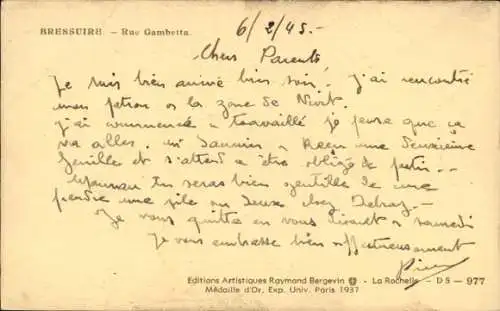 BRESSUIRE. — Rue Gambetta.
6/2/45.-
Chers Parents,
Je suis bien arrivé hier soir. J'ai rencontré
mon patron à la de Niort.
J'ai commencé à travaillé je pense que ça
va aller. Mr Saunier a Reçu une deuxième
feuille et s'attend a être obligé de partir..
Maman tu seras bien gentille de me
prendre une pile ou deux chez
Je vous quitte en vous disant a samedi
Je vous embrasse bien affectueusement
Editions Artistiques Raymond Bergevin - La Rochelle - D S - 977
Médaille d'Or, Exp. Univ. Paris 1937